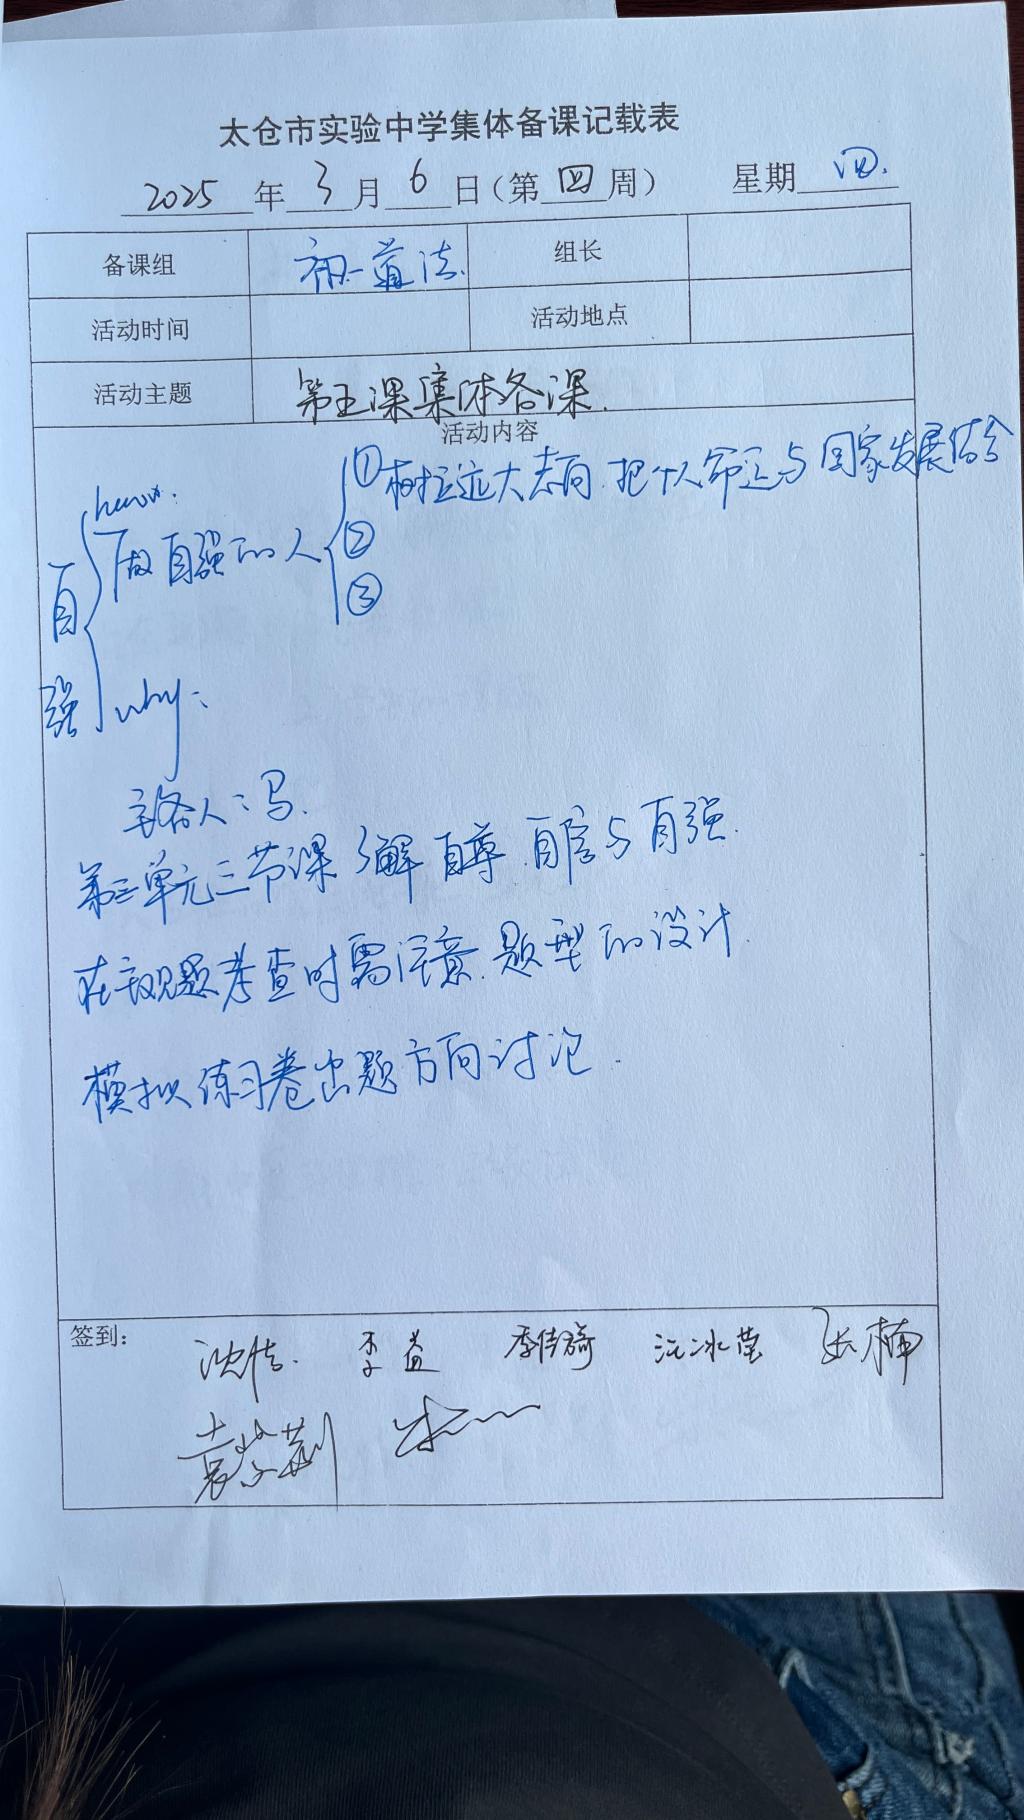 太仓市实验中学集体备课记载表
2025年3月6日（第四周） 星期四.
备课组 初一道法. 组长
活动时间 活动地点
活动主题 第五课集体备课.
活动内容
①树立远大志向.把个人命运与国家发展结合
how:
做自强的人 ②
自 ③
强 why:
主备人:冯.
第三单元三节课了解自尊.自信与自强.
在主观题考查时需注意.题型的设计.
模拟练习卷出题方向讨论.
签到: 沈倩. 李益 季倩琦 沅冰莹 张楠
袁紫荆